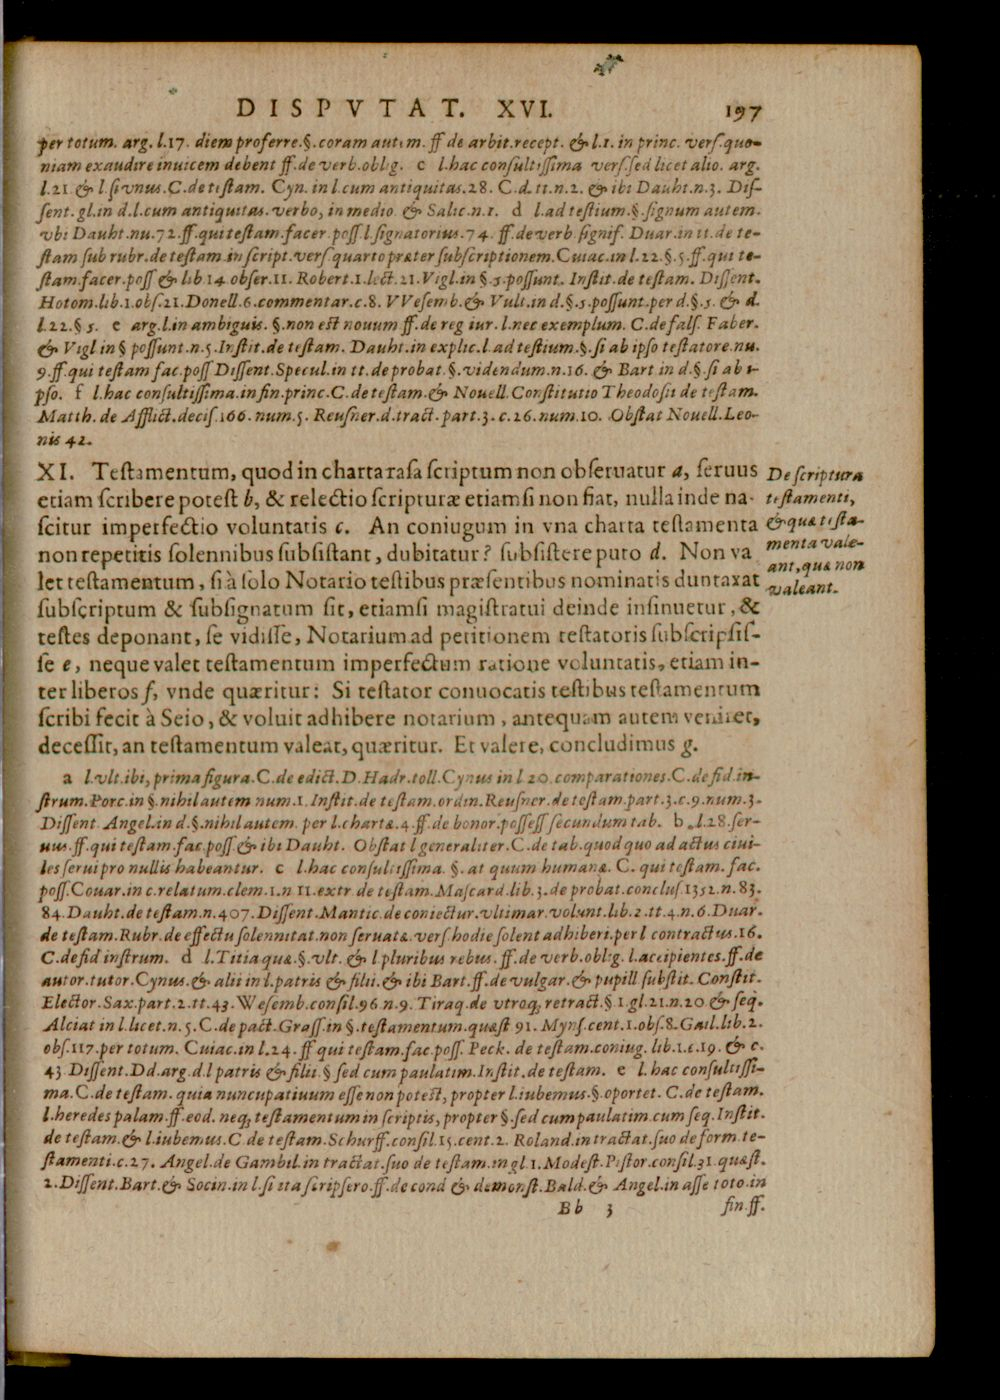 DISPVTAT. XVI. 197
per totum. arg. l.17. diem proferre.§.coram autem. ff de arbit.recept. & l.1. in princ. vers.quo-
niam exaudire inuicem debent ff.de verb.oblig. c l.hac consultissima vers.sed licet alio. arg.
l.21 & l.si vnus.C.de testam. Cyn. in l.cum antiquitas.28. C.d.tt.n.2. & ibi Dauht.n.3. Dis-
sent.gl.in d.l.cum antiquitas.verbo, in medio & Salic.n.1. d l.ad testium.§.signum autem.
vbi Dauht.nu.72.ff.qui testam.facer poss.l.signatorius.74. ff.de verb signif. Duar.in tt.de te-
stam sub rubr.de testam.in script.vers quarto præter subscriptionem.Cuiac.in l.22.§.5.ff.qui te-
stam.facer.poss & lib 14 obser.11. Robert.1.lect.21.Vigl.in §.5.possunt. Instit.de testam. Dissent.
Hotom.lib.1.obs.21.Donell.6.commentar.c.8. VVesemb.& Vult.in d.§.5.possunt.per d.§.5. & d.
l.22.§ 5. e arg.l.in ambiguis. §.non est nouum ff.de reg iur. l.nec exemplum. C.de fals. Faber.
& Vigl in § possunt.n.5.Instit.de testam. Dauht.in explic.l.ad testium.§.si ab ipso testatore.nu.
9.ff.qui testam fac.poss Dissent.Specul.in tt.de probat.§.videndum.n.16. & Bart in d.§.si ab i-
pso. f l.hac consultissima.in fin.princ.C.de testam.& Nouell.Constitutio Theodosii de testam.
Matth. de Afflict.decis.166.num.5. Reusner.d.tract.part.3.c.26.num.10. Obstat Nouell.Leo-
nis 42.
XI. Testamentum, quod in charta rasa scriptum non obseruatur a, seruus
etiam scribere potest b, & relectio scripturæ etiamsi non fiat, nulla inde na-
scitur imperfectio voluntatis c. An coniugum in vna charta testamenta
non repetitis solennibus subsistant, dubitatur? subsistere puto d. Non va
let testamentum, si à solo Notario testibus præsentibus nominatis duntaxat
subscriptum & subsignatum sit, etiamsi magistratui deinde insinuetur, &
testes deponant, se vidisse, Notarium ad petitionem testatoris subscripsis-
se e, neque valet testamentum imperfectum ratione voluntatis, etiam in-
ter liberos f, vnde quæritur: Si testator conuocatis testibus testamentum
scribi fecit à Seio, & voluit adhibere notarium, antequam autem veniret,
decessit, an testamentum valeat, quæritur. Et valere, concludimus g.
De scriptura
testamenti,
& quæ testa-
menta vale-
ant, quæ non
valeant.
a l.vlt.ibi, prima figura.C.de edict.D.Hadr.toll.Cynus in l 20 comparationes.C.de fid.in-
strum.Porc.in §.nihil autem num.1.Instit.de testam.ordin.Reusner.de testam.part.3.c.9.num.3.
Dissent Angel.in d.§.nihil autem. per l.chartæ.4.ff.de bonor.possess secundum tab. b.l.28.ser-
uus.ff.qui testam.fac.poss.& ibi Dauht. Obstat l generaliter.C.de tab.quod quo ad actus ciui-
les serui pro nullis habeantur. c l.hac consultissima. §.at quum humanæ. C. qui testam. fac.
poss.Couar.in c.relatum.clem.1.n 11.extr de testam.Mascard.lib.3.de probat.conclus.1352.n.83.
84.Dauht.de testam.n.407.Dissent.Mantic.de coniectur.vltimar.volunt.lib.2.tt.4.n.6.Duar.
de testam.Rubr.de effectu solennitat.non seruatæ.vers.hodie solent adhiberi.per l contractus.16.
C.de fid instrum. d l.Titia quæ.§.vlt. & l pluribus rebus. ff.de verb.oblig. l.accipientes.ff.de
autor.tutor.Cynus.& alii in l.patris & filii.& ibi Bart.ff.de vulgar.& pupill substit. Constit.
Elector.Sax.part.2.tt.43.Wesemb.consil.96.n.9. Tiraq.de vtroq; retract.§ 1.gl.21.n.20 & seq.
Alciat in l.licet.n.5.C.de pact.Grass.in §.testamentum.quæst 91. Myns.cent.1.obs.8.Gail.lib.2.
obs.117.per totum. Cuiac.in l.24.ff qui testam.fac.poss. Peck. de testam.coniug. lib.1.c.19. & c.
43 Dissent.Dd.arg.d.l patris & filii.§ sed cum paulatim.Instit.de testam. e l.hac consultissi-
ma.C.de testam. quia nuncupatiuum esse non potest, propter l.iubemus.§.oportet. C.de testam.
l.heredes palam.ff.eod. neq; testamentum in scriptis, propter §.sed cum paulatim.cum seq.Instit.
de testam.& l.iubemus.C de testam.Schurff.consil.15.cent.2. Roland.in tractat.suo de form.te-
stamenti.c.27. Angel.de Gambil.in tractat.suo de testam.in gl.1.Modest.Pistor.consil.31.quæst.
2.Dissent.Bart.& Socin.in l.si ita scripsero.ff.de cond & demonst.Bald.& Angel.in asse toto.in
Bb 3 fin.ff.